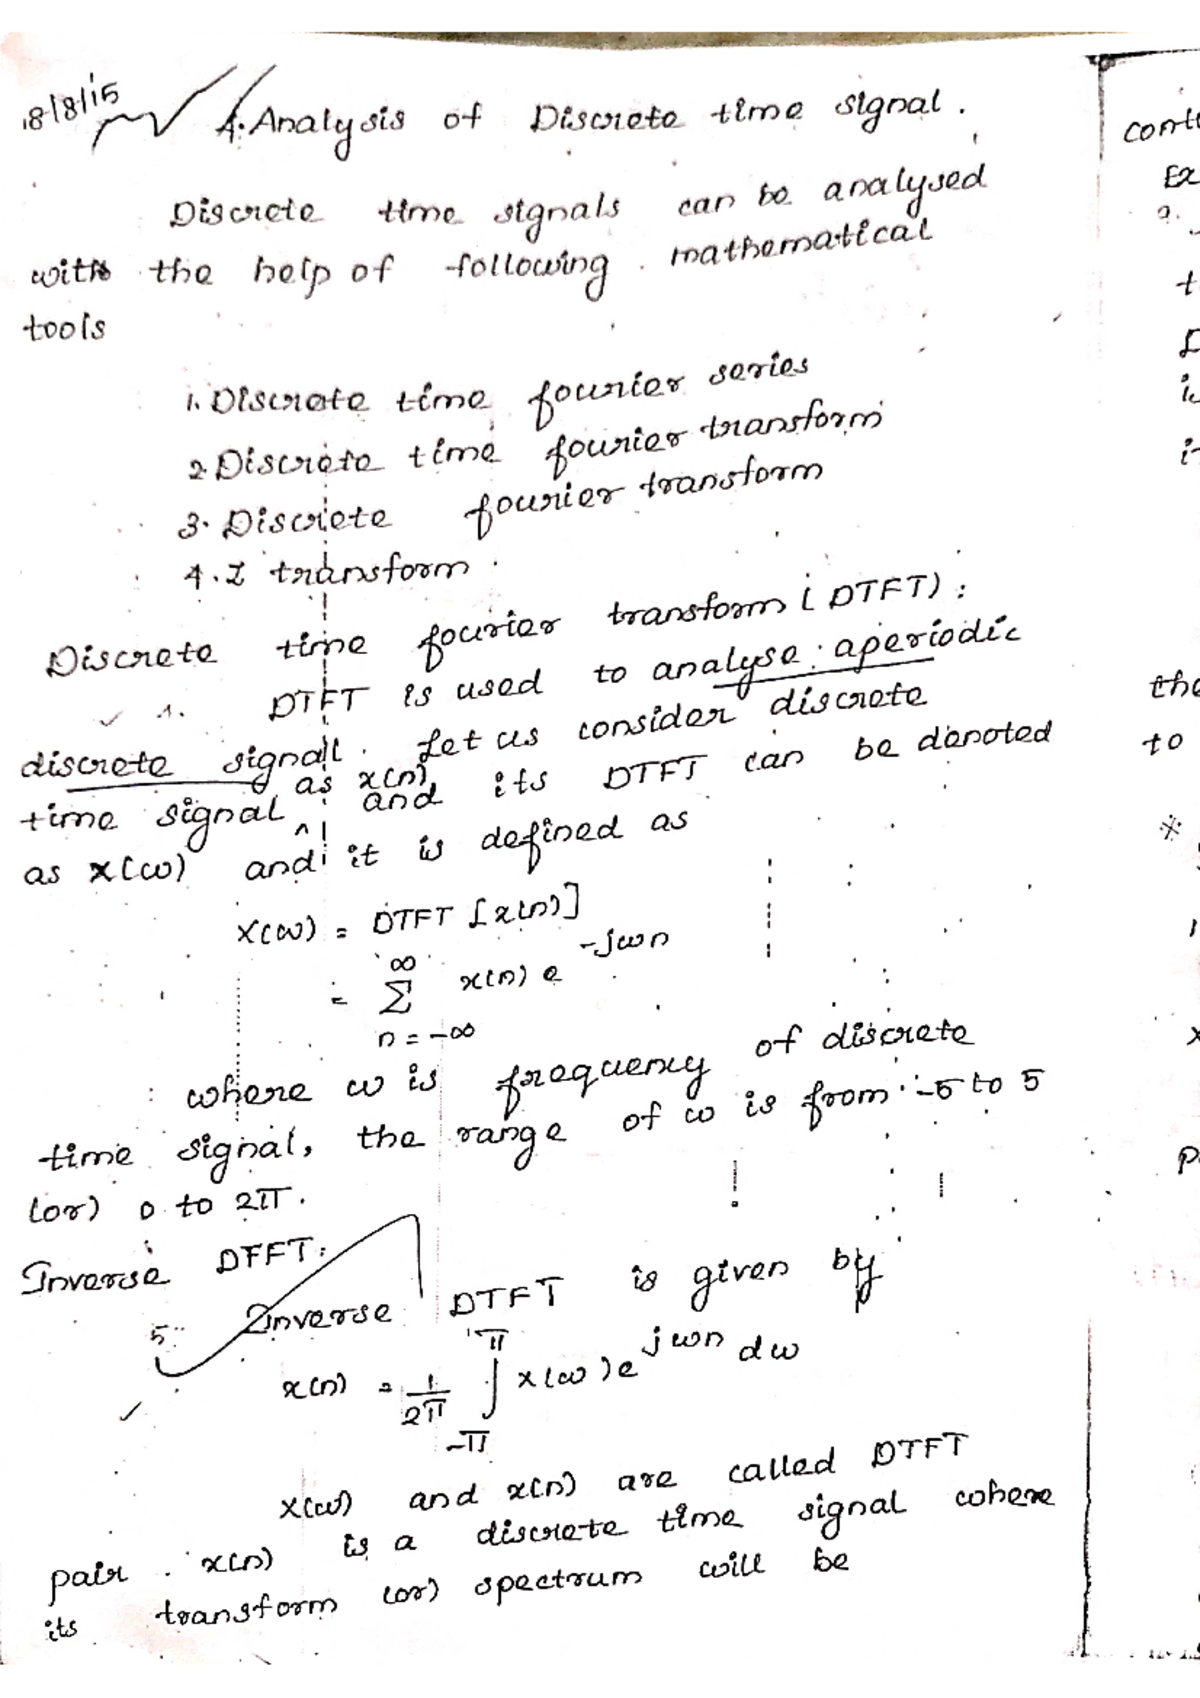 18/8/15
4. Analysis of Discrete time signal.
Discrete time signals can be analysed
with the help of following mathematical
tools
1. Discrete time fourier series
2. Discrete time fourier transform
3. Discrete fourier transform
4. Z transform.
Discrete time fourier transform (DTFT):
1. DTFT is used to analyse aperiodic
discrete signall. Let us consider discrete
time signal ^ as x(n) and its DTFT can be denoted
as x(ω) and it is defined as
X(ω) = DTFT [x(n)]
= ∞ Σ n = -∞ x(n) e^-jωn
where ω is frequency of discrete
time signal, the range of ω is from -5 to 5
(or) 0 to 2π.
Inverse DTFT:
5 Inverse DTFT is given by
x(n) = 1/2π ∫ π -π x(ω) e^jωn dω
X(ω) and x(n) are called DTFT
pair. x(n) is a discrete time signal where
its transform (or) spectrum will be
Ex
t
the
to
*